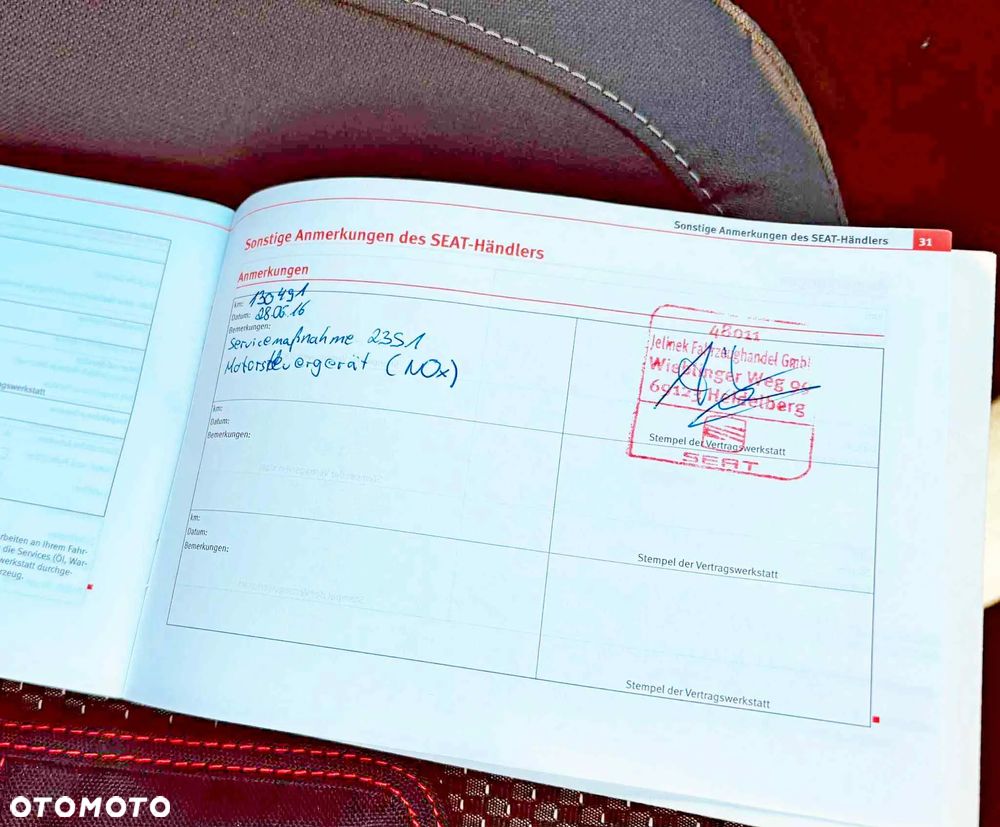 Sonstige Anmerkungen des SEAT-Händlers 31
Sonstige Anmerkungen des SEAT-Händlers
Anmerkungen
km: 130491
Datum: 28.06.16
Bemerkungen:
Servicemaßnahme 23S1
Motorsteuergerät (NOx)
48011
Jelinek Fahrzeughandel GmbH
Wieblinger Weg
69123 Heidelberg
Stempel der Vertragswerkstatt
SEAT
km:
Datum:
Bemerkungen:
Stempel der Vertragswerkstatt
km:
Datum:
Bemerkungen:
Stempel der Vertragswerkstatt
gswerkstatt
rbeiten an Ihrem Fahr-
die Services (Öl, War-
werkstatt durchge-
zeug.
OTOMOTO